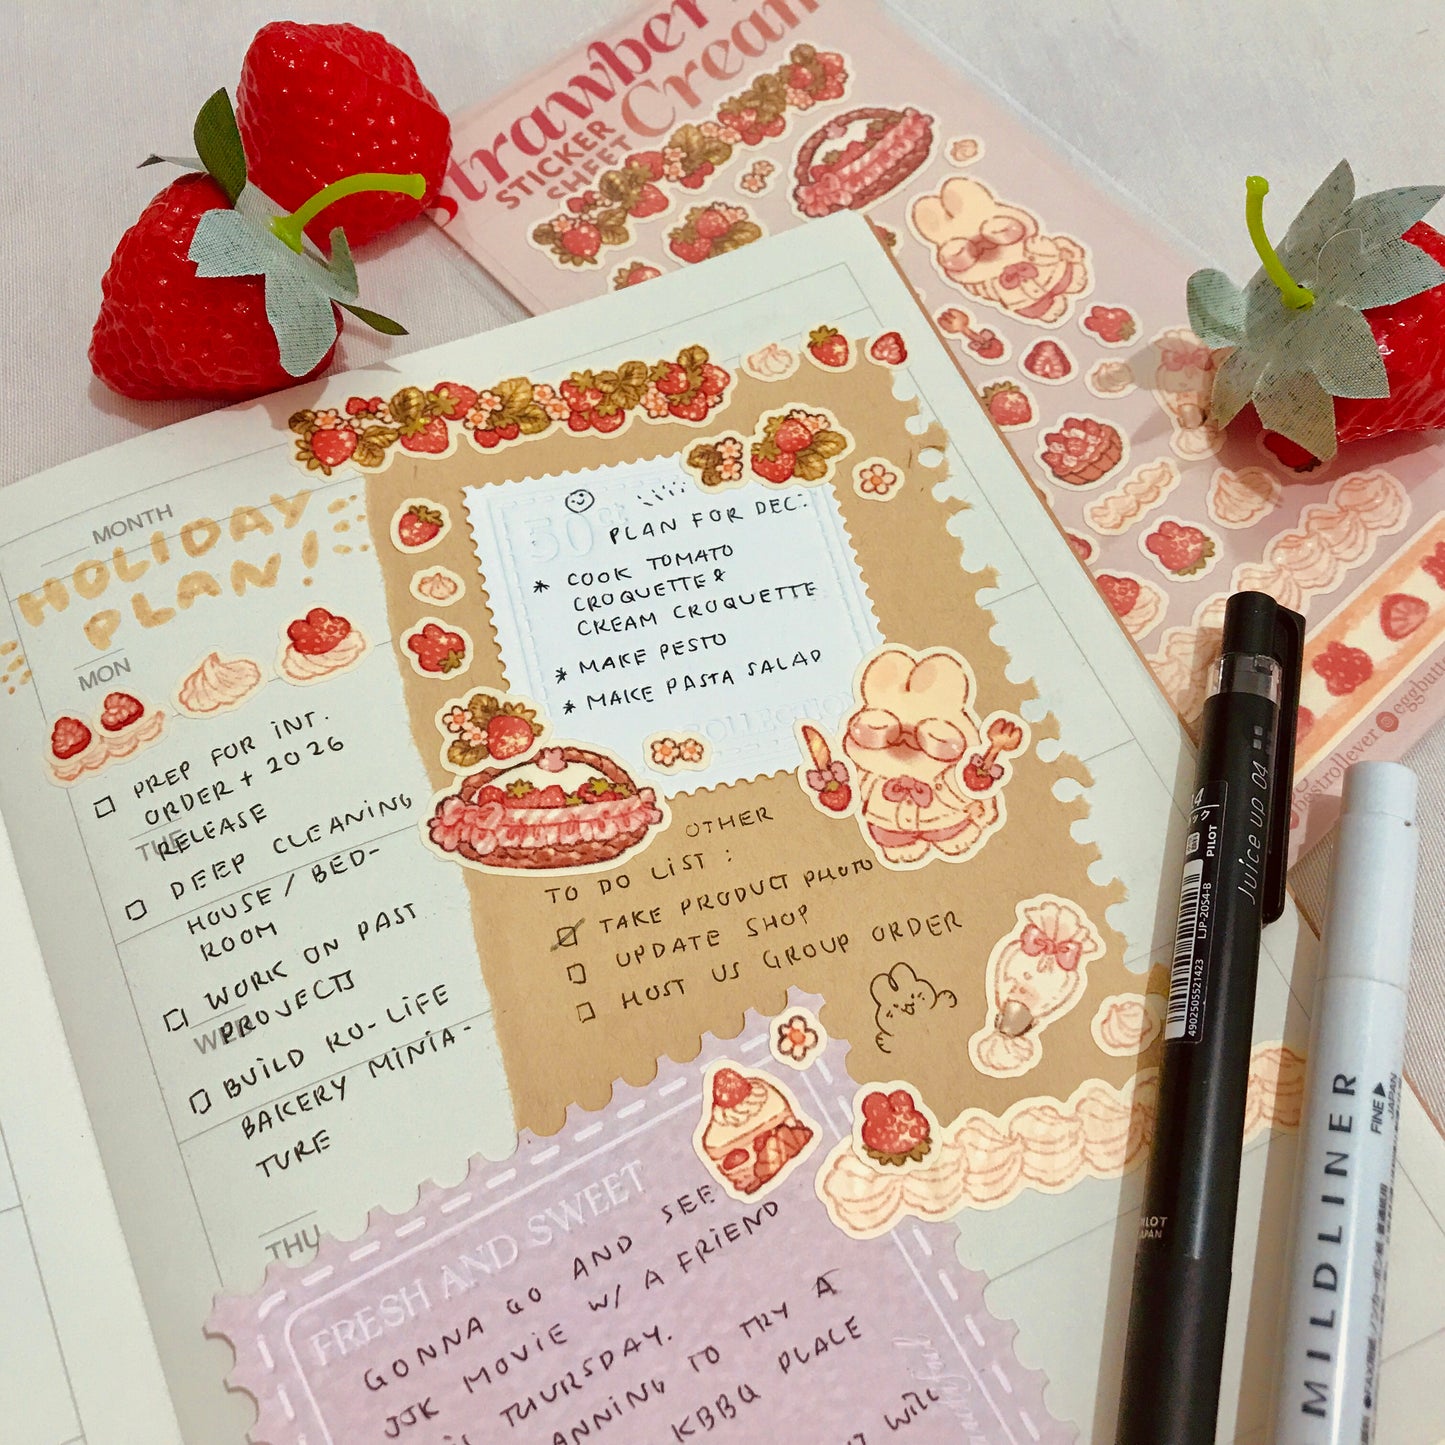 Strawber
Cream
STICKER
SHEET
MONTH
HOLIDAY
PLAN!
MON
PREP FOR INT.
ORDER + 2026
RELEASE
TUE
DEEP CLEANING
HOUSE / BED-
ROOM
WORK ON PAST
PROJECTS
WED
BUILD RO-LIFE
BAKERY MINIA-
TURE
THU
50
PLAN FOR DEC:
* COOK TOMATO
CROQUETTE &
CREAM CROQUETTE
* MAKE PESTO
* MAKE PASTA SALAD
COLLECTION
OTHER
TO DO LIST :
TAKE PRODUCT PHOTO
UPDATE SHOP
HOST US GROUP ORDER
FRESH AND SWEET
GONNA GO AND SEE
JJK MOVIE W/ A FRIEND
THURSDAY.
TO TRY A
KBBQ PLACE
WILL
Juice up 04
PILOT
LJP-20S4-B
4902505521423
PILOT
JAPAN
MILDLINER
FINE
JAPAN